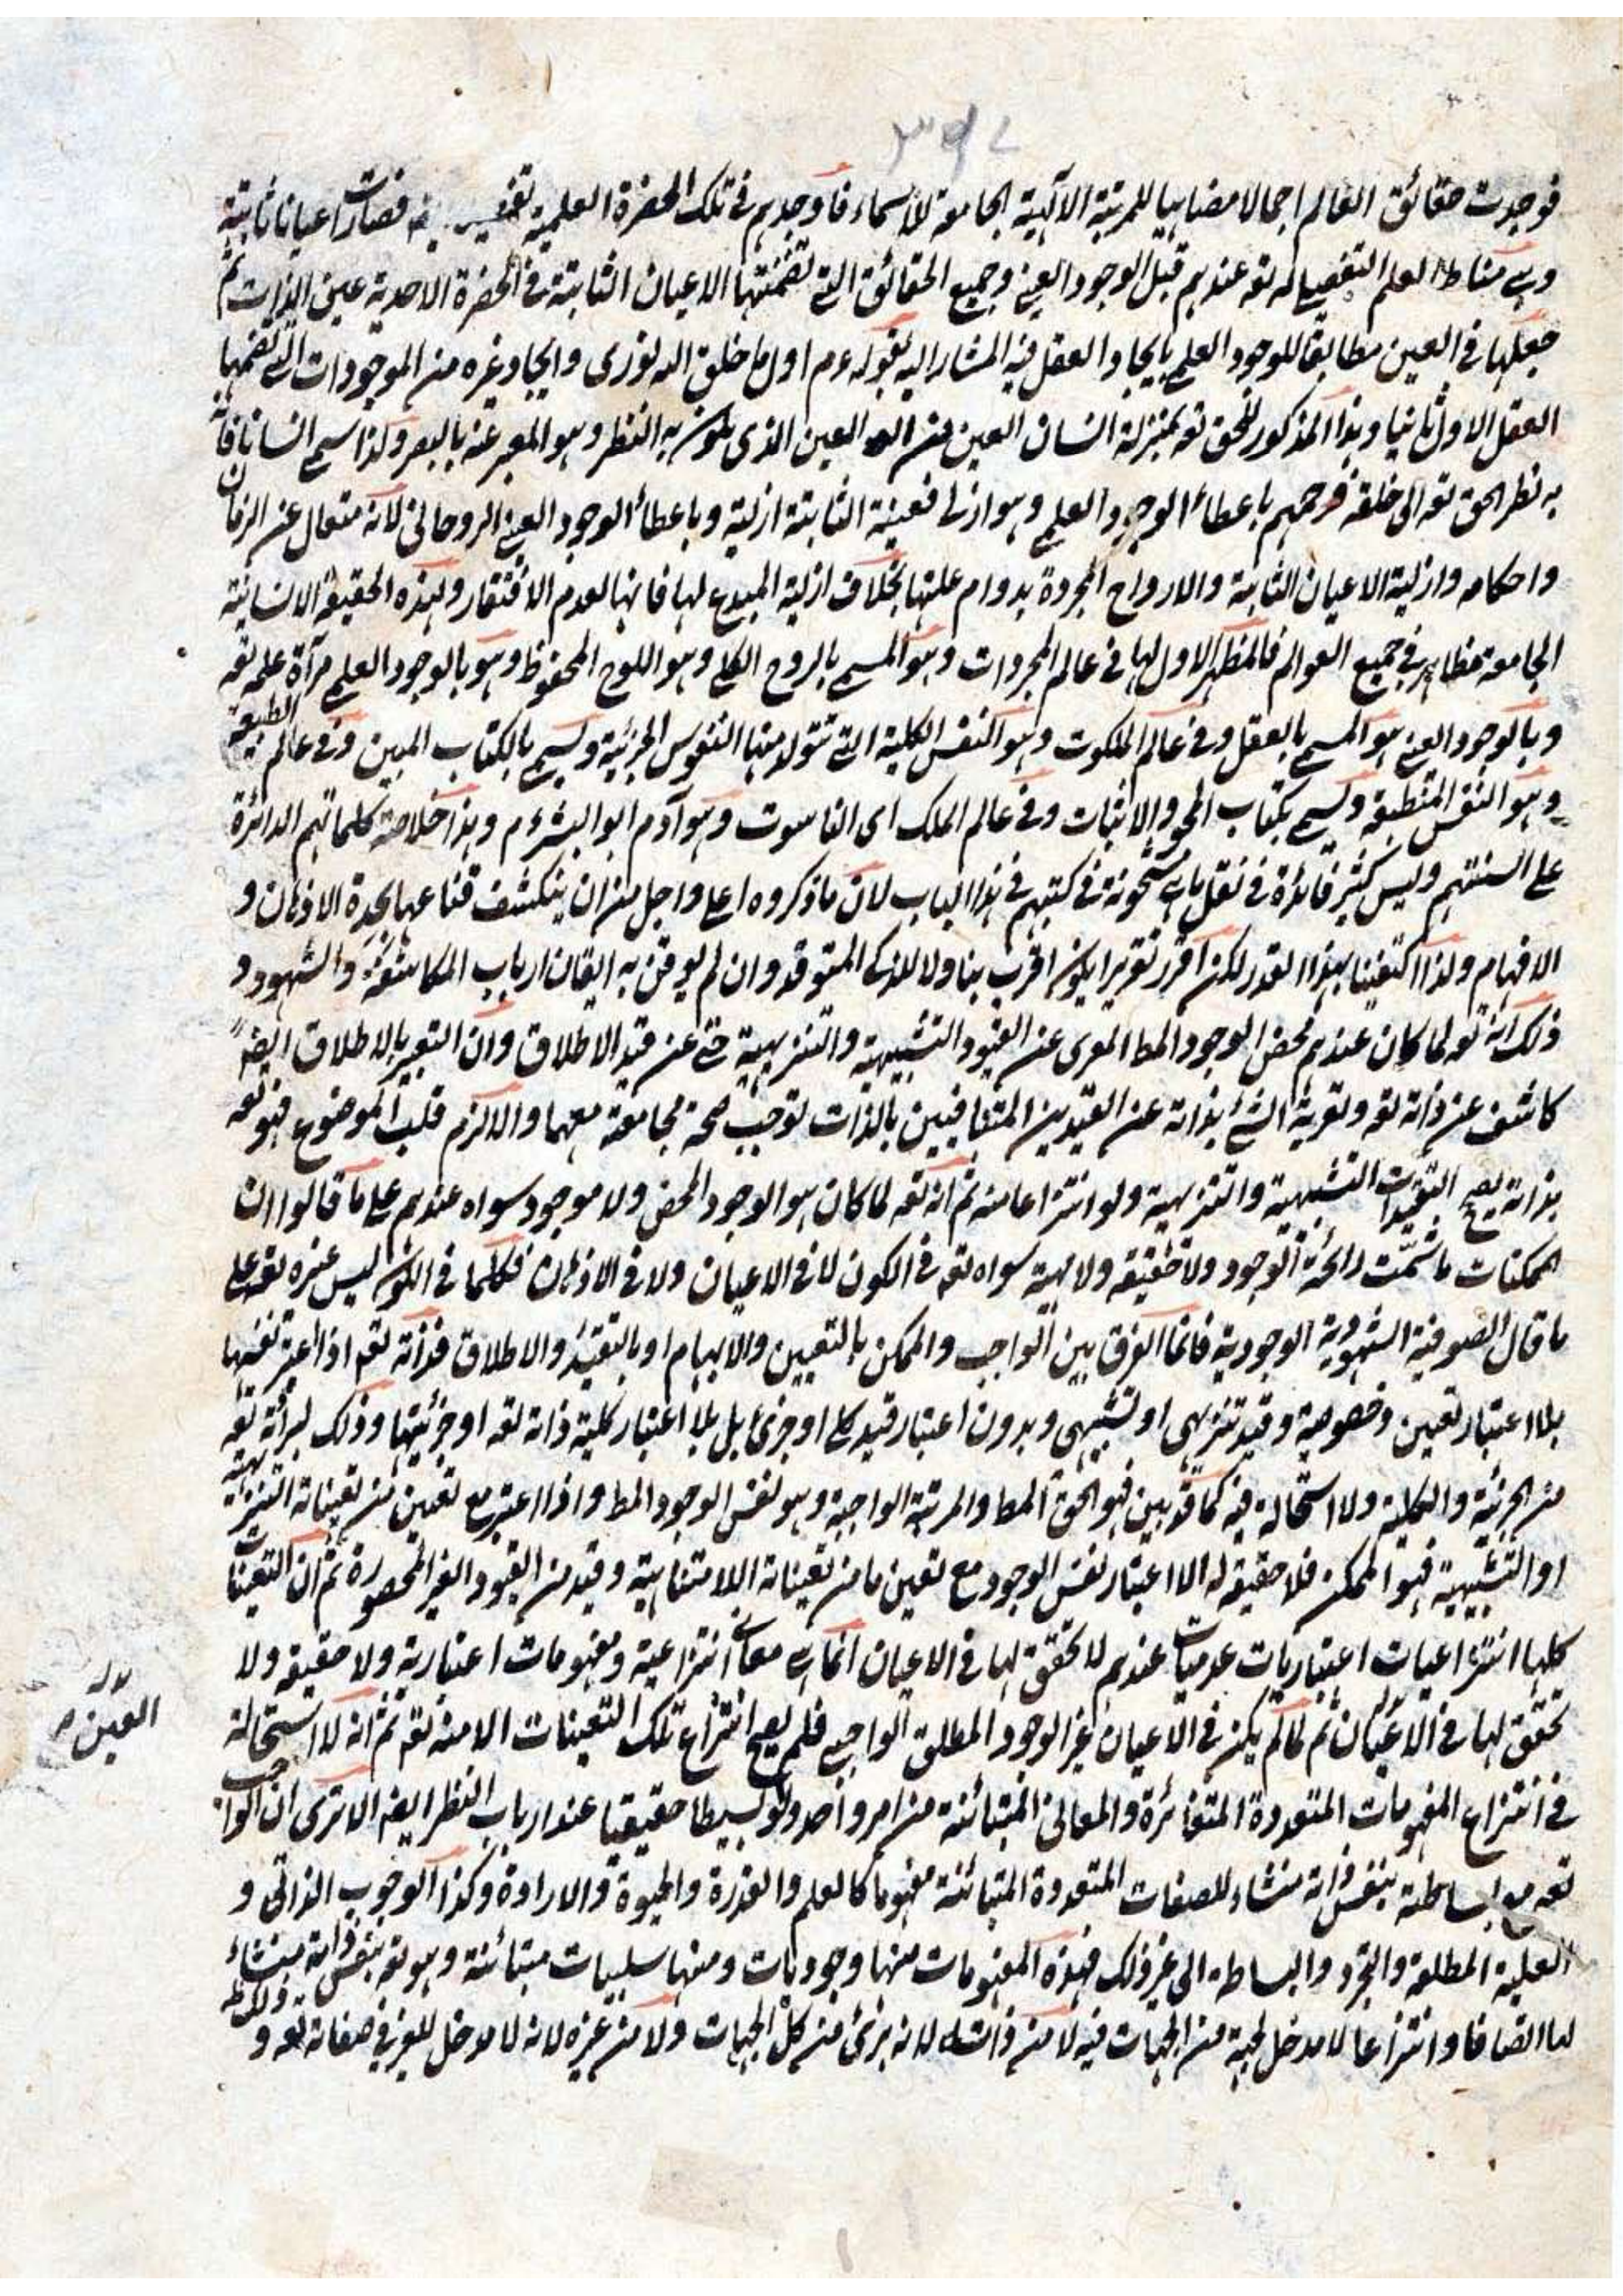 ٣٩٤
فوجدت حقائق العالم اجمالا مضاهيا للمرتبة الالهية الجامعة للاسماء فاوجدهم في تلك الحضرة العلمية فصارت اعيانا ثابتة
وهي مناط العلم التفصيلي له تعه عندهم قبل الوجود العيني وجميع الحقائق التي تضمنتها الاعيان الثابتة في الحضرة الاحدية عين الذات ثم
جعلها في العين مطابقا للوجود العلمي بايجاد العقل فيه المشار اليه بقوله عم اول ما خلق الله نوري وايجاد غيره من الموجودات التي تضمنها
العقل الاول ثانيا وهذا المذكور للحق تعه بمنزلة انسان العين من العين الذي يكون به النظر وهو المعبر عنه بالبصر ولذا سمي انسانا فانه
به نظر الحق تعه الى خلقه فرحمهم باعطاء الوجود العلمي وهو ازلي فعينية الثابتة ازلية وباعطاء الوجود العيني الروحاني لانه متعال عن الزمان
واحكامه وازلية الاعيان الثابتة والارواح المجردة بدوام علتها بخلاف ازلية المبدع لها فانها لعدم الافتقار ولهذه الحقيقة الانسانية
الجامعة مظاهر في جميع العوالم فالمظهر الاول لها في عالم المجردات وهو المسمى بالروح الكلي وهو اللوح المحفوظ وهو بالوجود العلمي مرآة علمه تعه
وبالوجود العيني هو المسمى بالعقل وفي عالم الملكوت وهو النفس الكلية التي تتولد منها النفوس الجزئية ويسمى بالكتاب المبين وفي عالم الطبيعة
وهو النفس المنطبعة ويسمى بكتاب المحو والاثبات وفي عالم الملك اى الناسوت وهو آدم ابو البشر عم وهذا خلاصة كلماتهم الدائرة
على السنتهم وليس كثير فائدة في نقل ما هي مشحونة في كتبهم في هذا الباب لان ما ذكروه اعلى واجل من ان ينكشف قناعها بحدة الاذهان و
الافهام ولذا اكتفينا بهذا القدر لكن اقرر تقريرا يكون اقرب تناولا للذكي المتوقد وان لم يوقن به ايقان ارباب المكاشفة والشهود و
ذلك انه تعه لما كان عندهم محض الوجود المط المعرى عن القيود التشبيهية والتنزيهية حتى عن قيد الاطلاق وان التعبير بالاطلاق ايضا
كاشف عن ذاته تعه وتعرية الشئ بذاته عن القيدين المتنافيين بالذات توجب صحة مجامعته معهما والا لزم قلب الموضوع فهو تعه
بذاته يصح التقيدات التشبيهية والتنزيهية ولو انتزاعا منه ثم انه تعه لما كان هو الوجود المحض ولا موجود سواه عندهم على ما قالوا ان
الممكنات ما شمت رائحة الوجود ولا حقيقة ولا مهية سواه تعه في الكون لا في الاعيان ولا في الاذهان فكلما في الكون ليس غيره تعه على
ما قال الصوفية الشهودية الوجودية فانما الفرق بين الواجب والممكن بالتعيين والابهام او بالتقييد والاطلاق فذاته تعه اذا اعتبر نفسها
بلا اعتبار تعين وخصوصية وقيد تنزيهي او تشبيهي وبدون اعتبار قيد كلي او جزئي بل بلا اعتبار كلية ذاته تعه او جزئيتها وذلك لبرائة تعه
من الجزئية والكلية ولا استحالة فيه كما قد بين فهو الحق المط والمرتبة الواجبة وهو نفس الوجود المط واذا اعتبر مع تعين من تعيناته التنزيهية
او التشبيهية فهو الممكن فلا حقيقة له الا اعتبار نفس الوجود مع تعين ما من تعيناته اللامتناهية وقيد من القيود الغير المحصورة ثم ان التعينات
كلها انتزاعيات اعتباريات عدميات عندهم لا تحقق لها في الاعيان انما هي معان انتزاعية ومفهومات اعتبارية ولا حقيقة ولا
تحقق لها في الاعيان ثم لما لم يكن في الاعيان غير الوجود المطلق الواجبي فلم يصح انتزاع تلك التعينات الا منه تعه ثم انه لا استحالة
في انتزاع المفهومات المتعددة المتغائرة والمعاني المتبائنة من امر واحد ولو بسيطا حقيقيا عند ارباب النظر ايضا الا ترى ان الواجب
تعه مع بساطته بنفس ذاته منشاء للصفات المتعددة المتبائنة مفهوما كالعلم والقدرة والحيوة والارادة وكذا الوجوب الذاتي و
العلية المطلقة والتجرد والبساطة الى غير ذلك فهذه المفهومات منها وجوديات ومنها سلبيات متبائنة وهو تعه بنفس ذاته منشاء
لها اتصافا وانتزاعا لا مدخل لجهة من الجهات فيه لا من ذاته لانه برئ من كل الجهات ولا من غيره لانه لا مدخل للغير في صفاته تعه و
العين